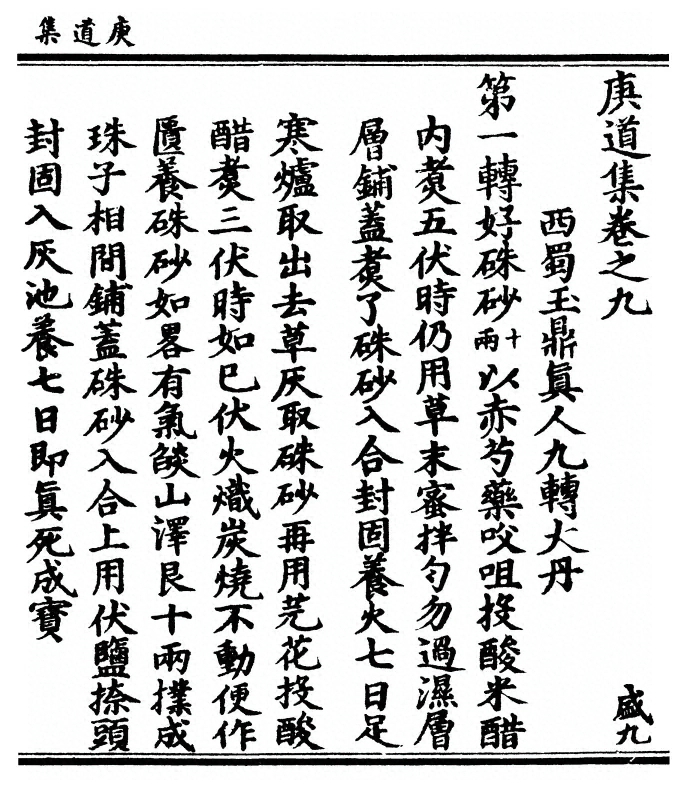 庚道集
庚道集卷之九 盛九
西蜀玉鼎眞人九轉大丹
第一轉好硃砂十兩以赤芍藥㕮咀投酸米醋
內煑五伏時仍用草末蜜拌勻勿過濕層
層鋪蓋煑了硃砂入合封固養火七日足
寒爐取出去草灰取硃砂再用芫花投酸
醋煑三伏時如巳伏火熾炭燒不動便作
匱養硃砂如畧有氣燄山澤艮十兩擈成
珠子相間鋪蓋硃砂入合上用伏鹽捺頭
封固入灰池養七日即眞死成寳